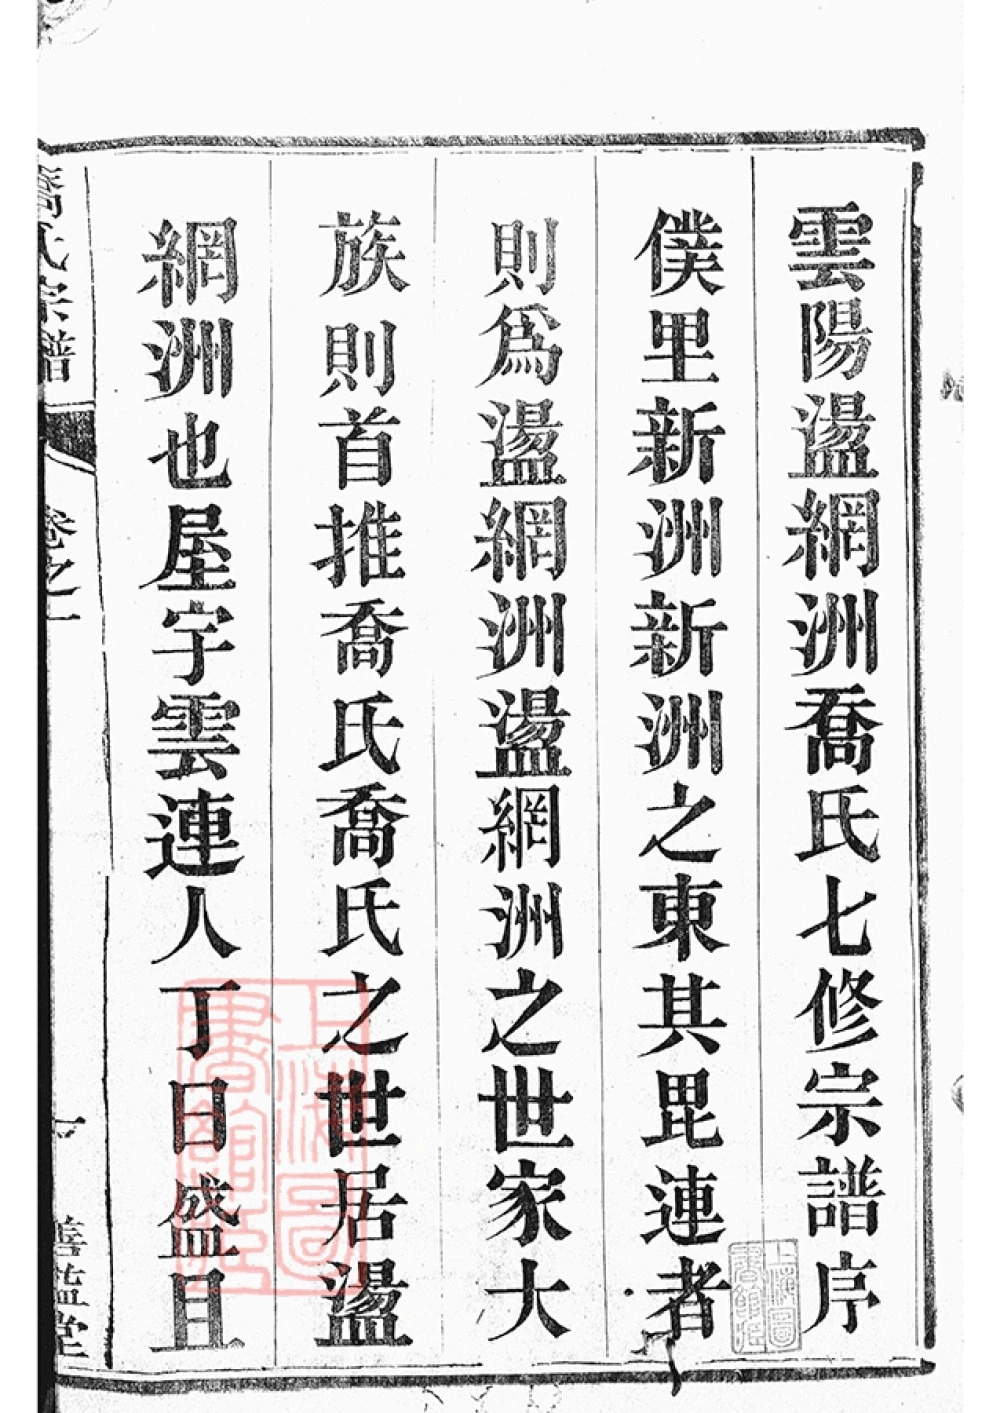 雲陽盪網洲喬氏七修宗譜序
僕里新洲新洲之東其毘連者
則爲盪網洲盪網洲之世家大
族則首推喬氏喬氏之世居盪
網洲也屋宇雲連人丁日盛且
喬氏宗譜 卷之一 一 善繼堂
上海圖書館藏
上海圖書館藏